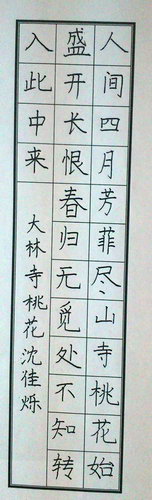 人间四月芳菲尽山寺桃花始
盛开长恨春归无觅处不知转
入此中来
大林寺桃花沈佳烁